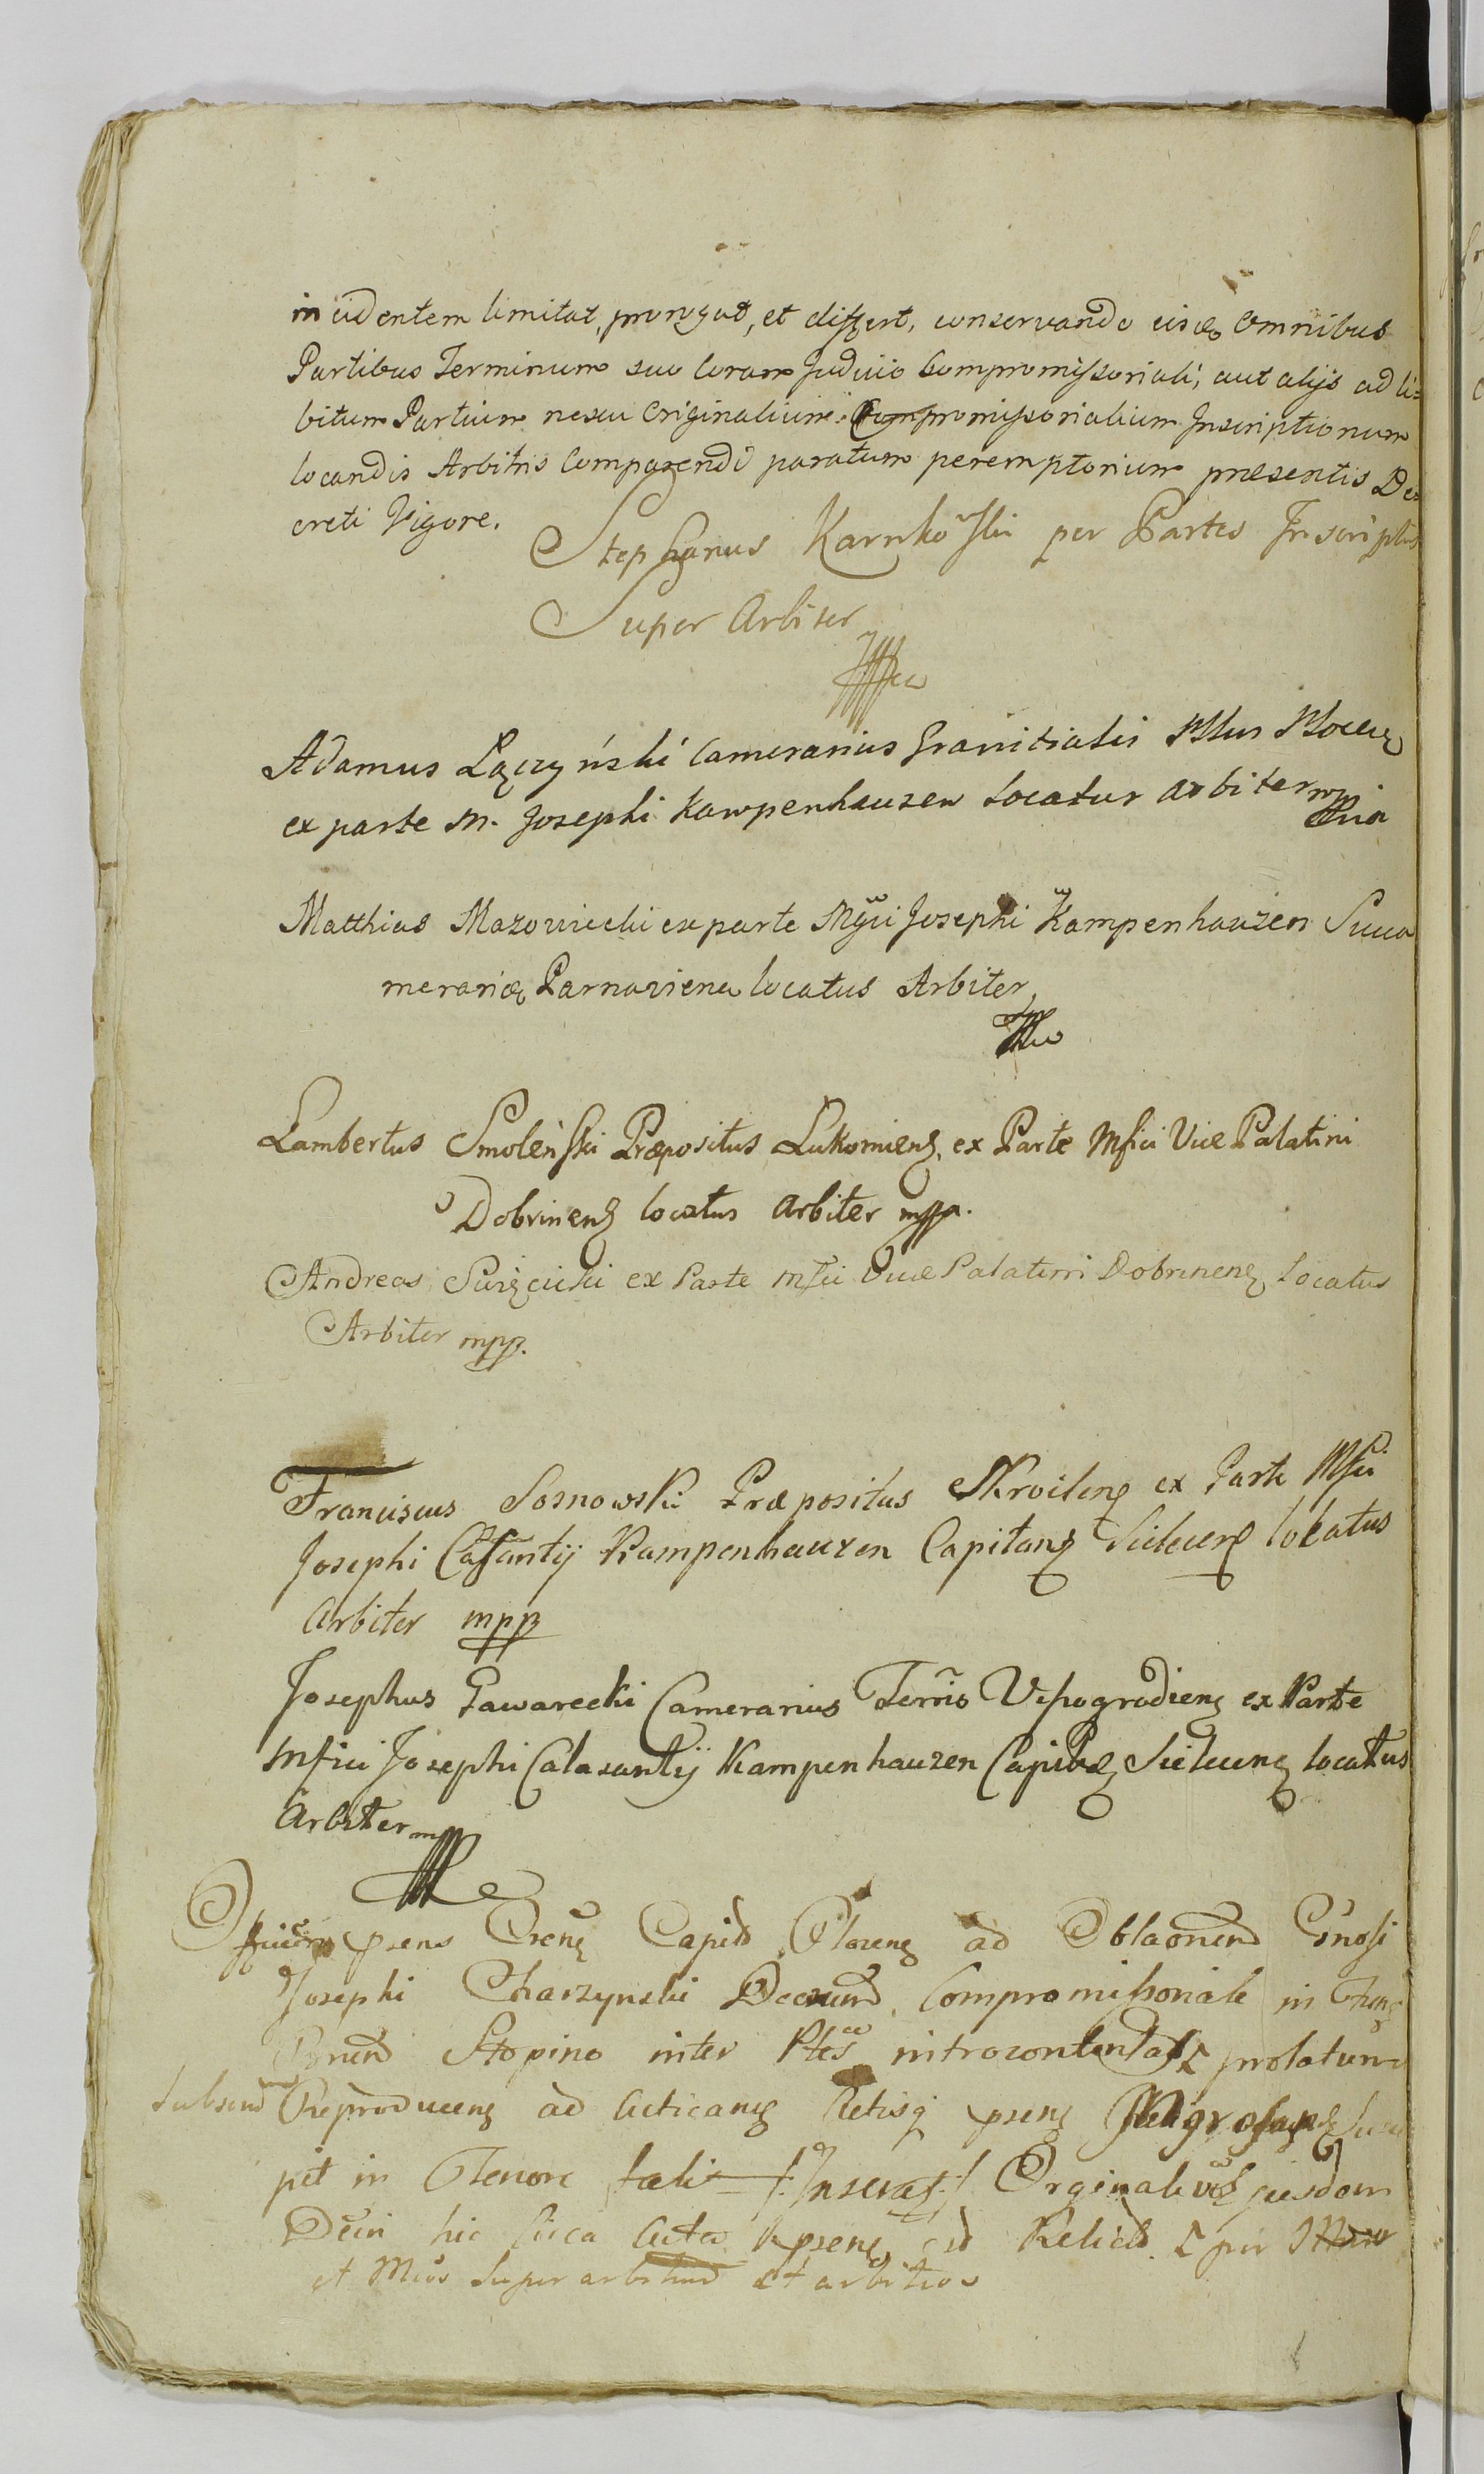 incidentem limitat, prorogat, et differt, conservando eisdem omnibus
Partibus Terminum suo coram Judicio Compromissoriali, aut alijs ad li=
bitum Partium nexu Originalium Compromissorialium Inscriptionum
locandis Arbitris Comparendi paratum peremptorium praesentis De=
creti Vigore.
Stephanus Karnkoski per Partes Inscriptus
Super Arbiter
Adamus Łączyński Camerarius Granicialis Pltus Plocen
ex parte M. Josephi Kampenhauzen locatus arbiter mpria
Matthias Mazowiecki ex parte Mgci Josephi Kampenhauzen Succa
merarij Parnaviens locatus Arbiter
Lambertus Smoleński Praepositus Lukomiens ex Parte Mfici Vice Palatini
Dobrinens locatus Arbiter mppa.
Andreas ex Parte Mfici Vice Palatini Dobrinens locatus
Arbiter mpp.
Franciscus Sosnowski Praepositus Skrvilens ex Parte Mfici
Josephi Casantij Kampenhauzen Capitans locatus
Arbiter mpp
Josephus Gawarecki Camerarius Terris Vysogrodiens ex Parte
Mfici Josephi Calasantij Kampenhauzen locatus
Arbiter mpp
psens Capid ad Oblaonem Gnosi
Josephi Charzynski Decretum Compromissoriale in
inter Ptes introcontentas prolatum
Reproducens ad Acticans Actisq psens
pit in Tenore tali Inserat Orginale vo ejusdem
hic Acta psens Relict per
et super arbitrum et arbitros